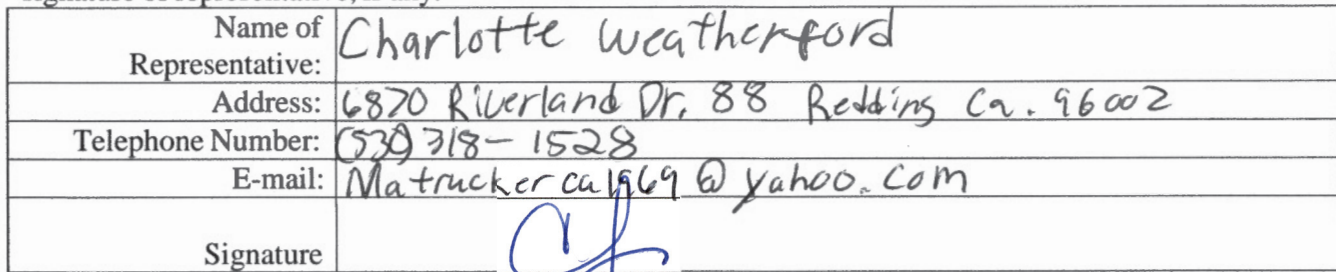 Name of Representative: Charlotte Weatherford
Address: 6820 Riverland Dr. 88 Redding Ca. 96002
Telephone Number: (530) 318-1528
E-mail: Matruckerca1969@yahoo.com
Signature